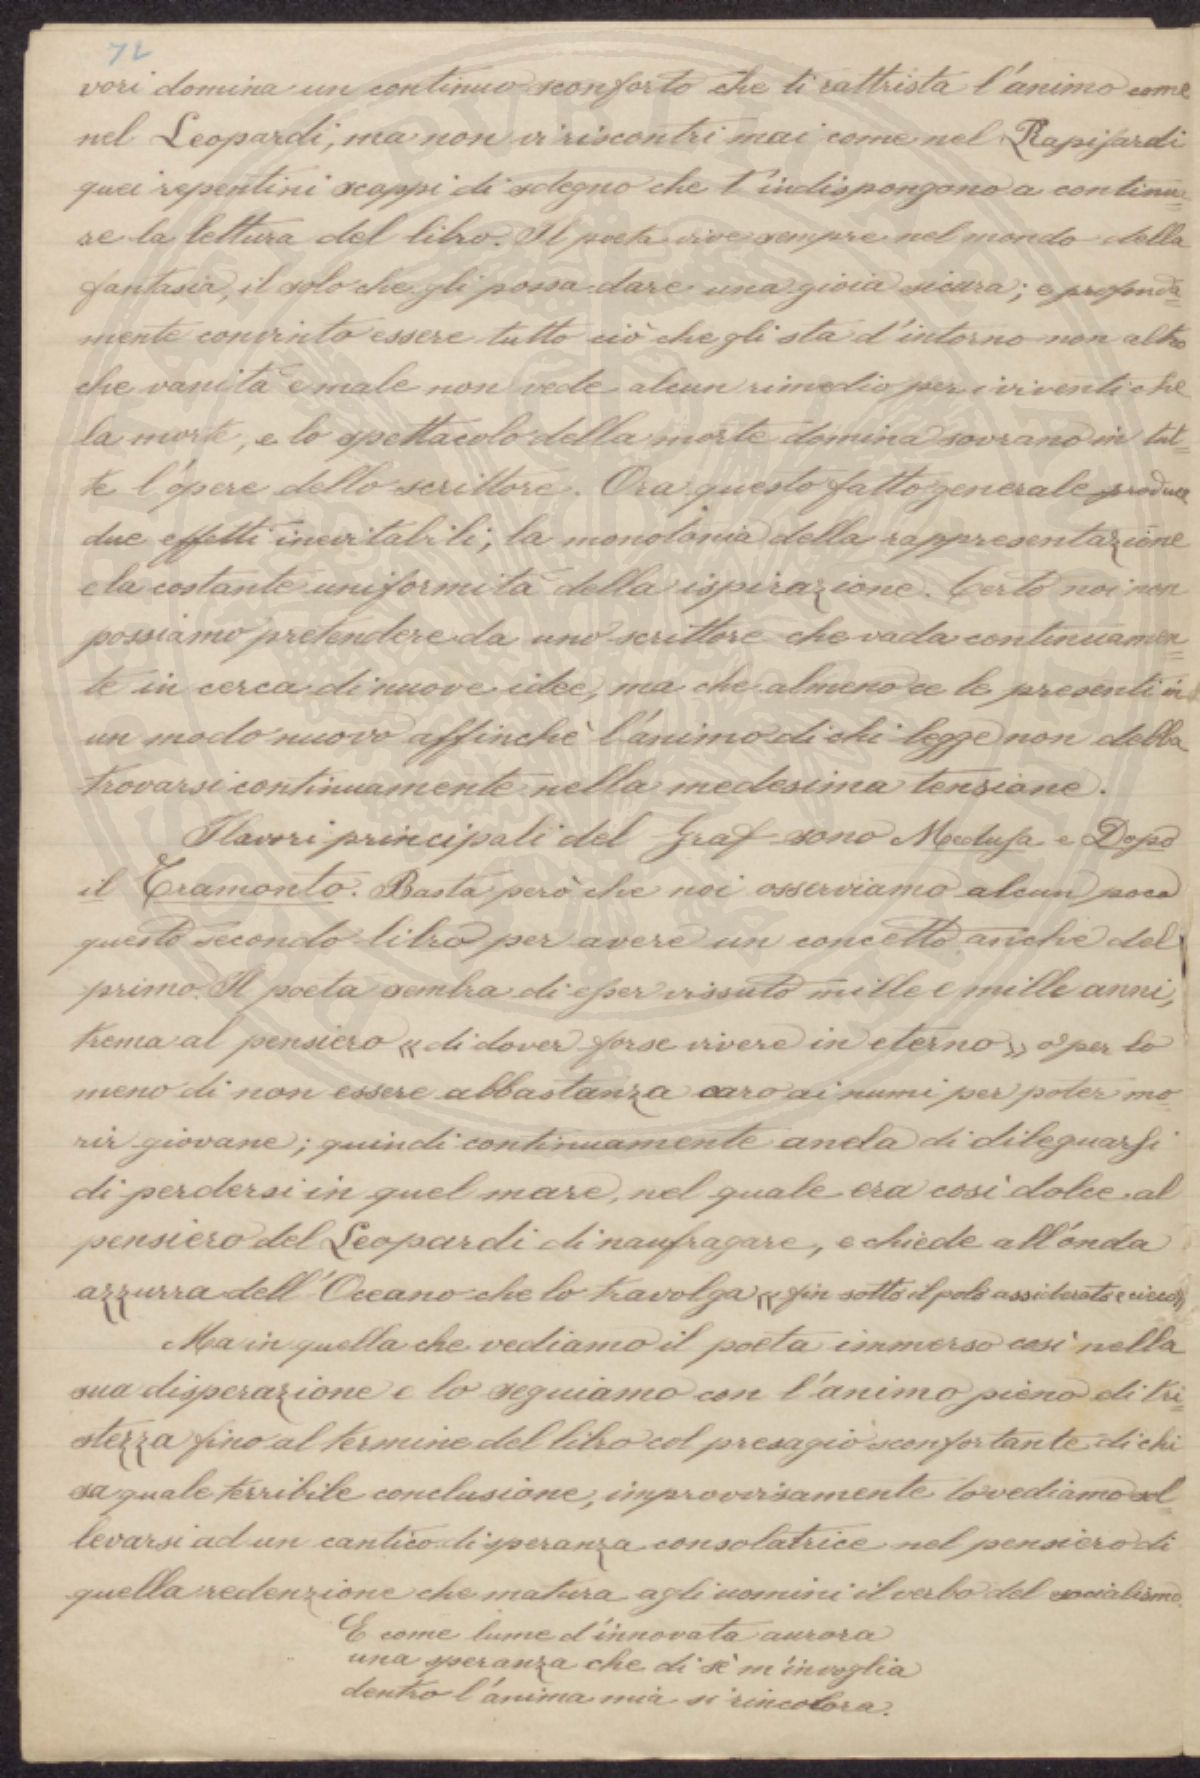 72
vori domina un continuo sconforto che ti rattrista l'animo come
nel Leopardi, ma non vi riscontri mai come nel Rapisardi
quei repentini scoppi di sdegno che t'indispongono a continua=
re la lettura del libro. Il poeta vive sempre nel mondo della
fantasia, il solo che gli possa dare una gioia sicura; e profonda=
mente convinto essere tutto ciò che gli sta d'intorno non altro
che vanità e male non vede alcun rimedio per i viventi che
la morte, e lo spettacolo della morte domina sovrano in tut=
te l'opere dello scrittore. Ora questo fatto generale produce
due effetti inevitabili; la monotonia della rappresentazione
e la costante uniformità della ispirazione. Certo noi non
possiamo pretendere da uno scrittore che vada continuamen=
te in cerca di nuove idee, ma che almeno ce le presenti in
un modo nuovo affinchè l'animo di chi legge non debba
trovarsi continuamente nella medesima tensione.
I lavori principali del Graf sono Medusa e Dopo
il Tramonto. Basta però che noi osserviamo alcun poco
questo secondo libro per avere un concetto anche del
primo. Il poeta sembra di esser vissuto mille e mille anni,
trema al pensiero «di dover forse vivere in eterno» o per lo
meno di non essere abbastanza caro ai numi per poter mo=
rir giovane; quindi continuamente anela di dileguarsi
di perdersi in quel mare, nel quale era così dolce al
pensiero del Leopardi di naufragare, e chiede all'onda
azzurra dell'Oceano che lo travolga «fin sotto il polo assiderato e cieco»
Ma in quella che vediamo il poeta immerso così nella
sua disperazione e lo seguiamo con l'animo pieno di tri=
stezza fino al termine del libro col presagio sconfortante di chi
sa quale terribile conclusione, improvvisamente lo vediamo sol=
levarsi ad un cantico di speranza consolatrice nel pensiero di
quella redenzione che matura agli uomini il verbo del socialismo.
E come lume d'innovata aurora
una speranza che di sè m'invoglia
dentro l'anima mia si rincolora.